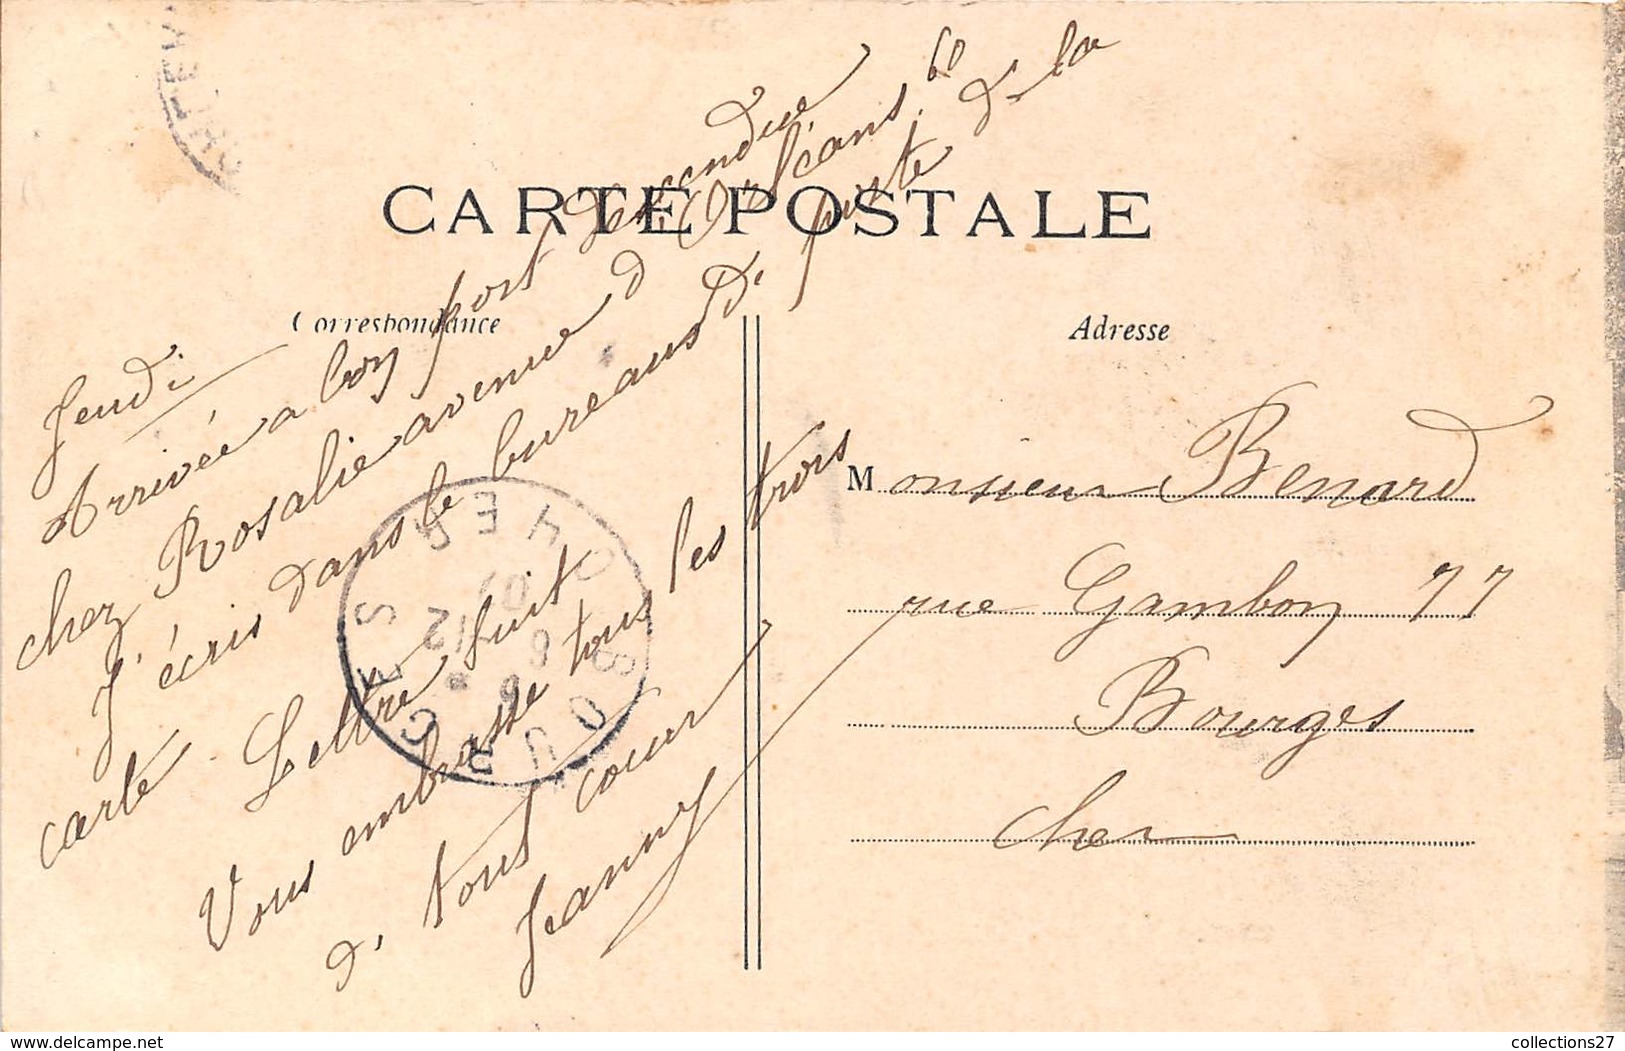 CARTE POSTALE
Correspondance
Jeudi
Arrivée a bon port descendue
chez Rosalie avenue d'Orléans. 60
J'écris dans le bureaux de poste de la
carte. Lettre suit
Vous embrasse tous les trois
de tout cœur
Jeanny
Adresse
Monsieur Benard
rue Gambon 77
Bourges
Cher
BOURGES
CHER
delcampe.net
collections27